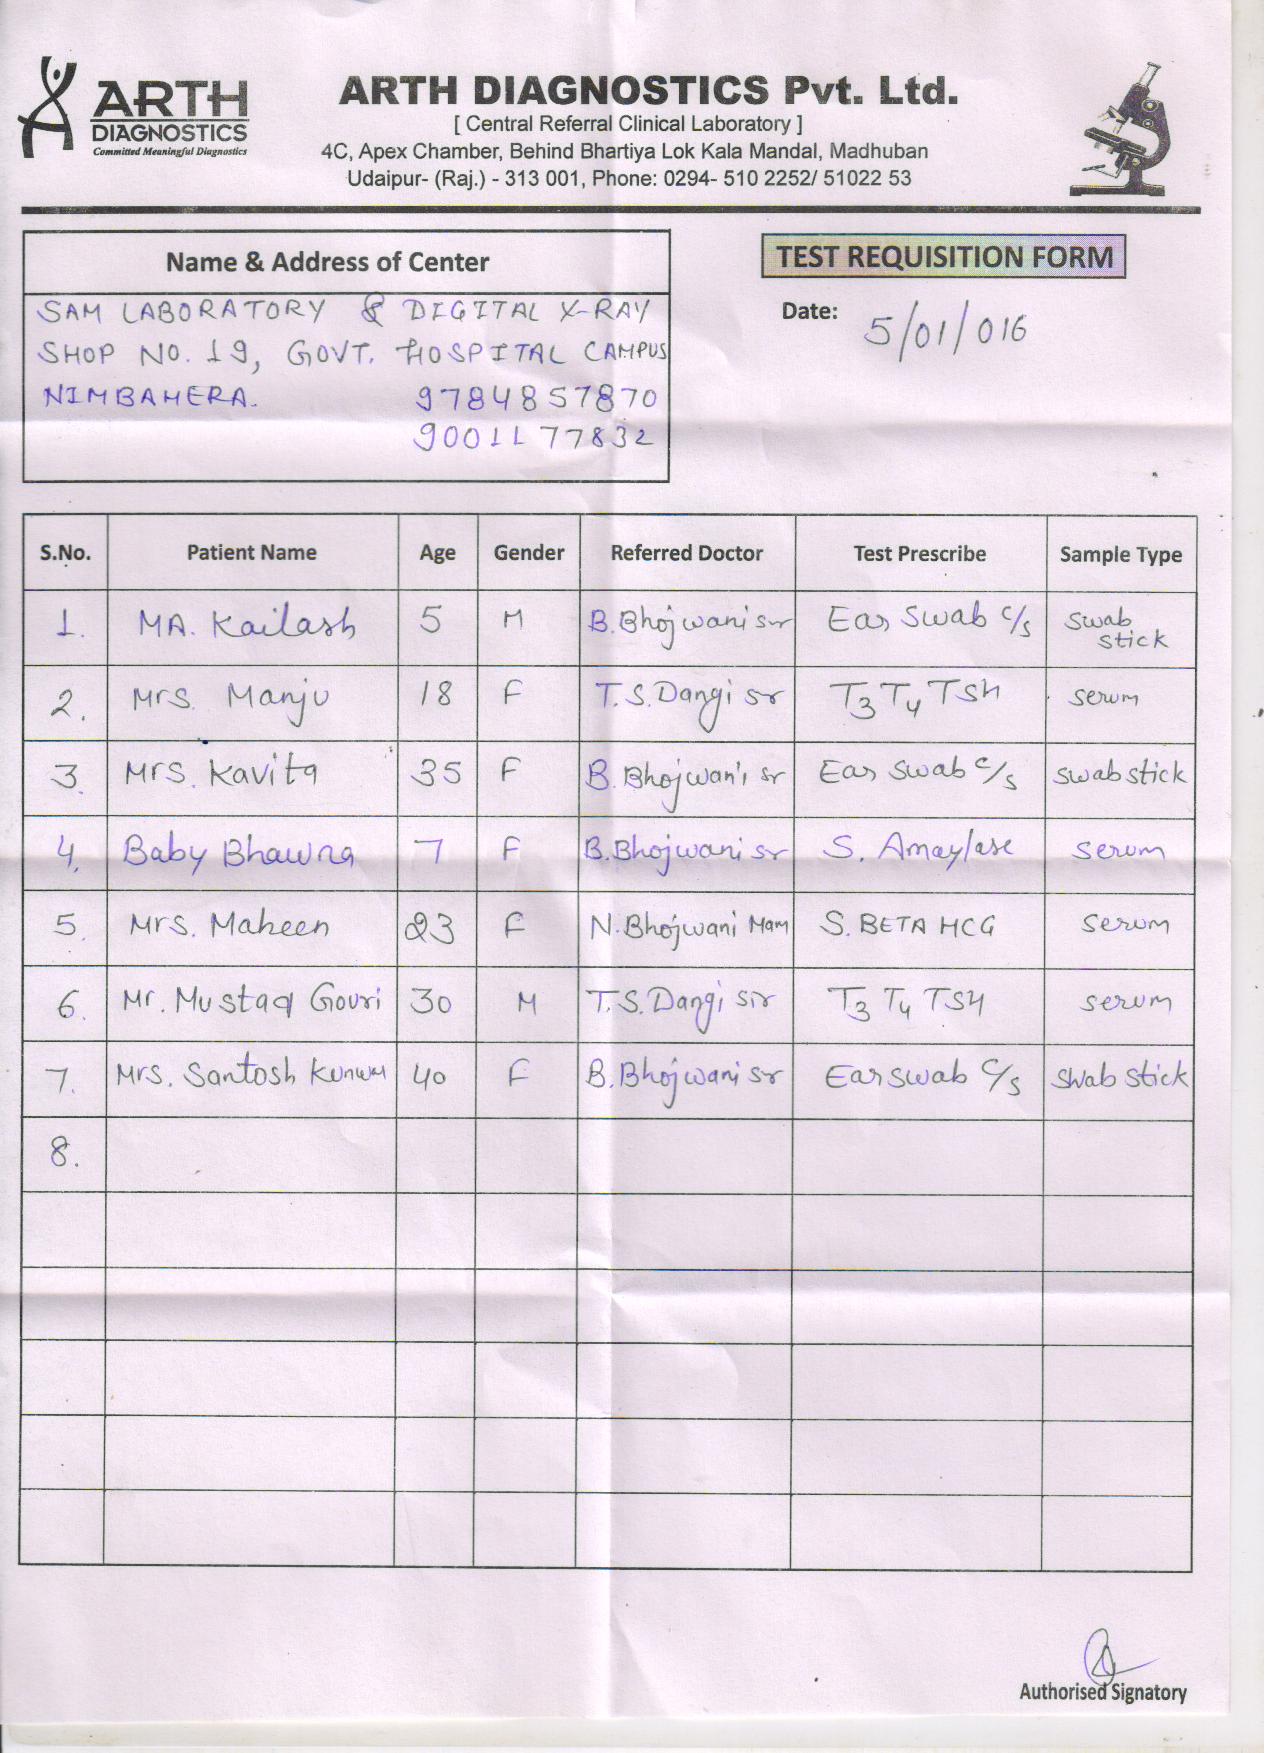 ARTH
DIAGNOSTICS
Committed Meaningful Diagnostics
ARTH DIAGNOSTICS Pvt. Ltd.
[ Central Referral Clinical Laboratory ]
4C, Apex Chamber, Behind Bhartiya Lok Kala Mandal, Madhuban
Udaipur- (Raj.) - 313 001, Phone: 0294- 510 2252/ 51022 53
Name & Address of Center
SAM LABORATORY & DIGITAL X-RAY
SHOP NO. 19, GOVT. HOSPITAL CAMPUS
NIMBAHERA. 9784857870
9001177832
TEST REQUISITION FORM
Date: 5/01/016
S.No. Patient Name Age Gender Referred Doctor Test Prescribe Sample Type
1. MA. Kailash 5 M B. Bhojwani sir Ear Swab c/s swab stick
2. Mrs. Manju 18 F T.S. Dangi sr T3 T4 TSH serum
3. Mrs. Kavita 35 F B. Bhojwani sr Ear Swab c/s swab stick
4. Baby Bhawna 7 F B. Bhojwani sr S. Amaylase serum
5. Mrs. Maheen 23 F N. Bhojwani Mam S. BETA HCG serum
6. Mr. Mustaq Gouri 30 M T.S. Dangi sir T3 T4 TSH serum
7. Mrs. Santosh Kunwar 40 F B. Bhojwani sr Ear swab c/s swab stick
8.
Authorised Signatory